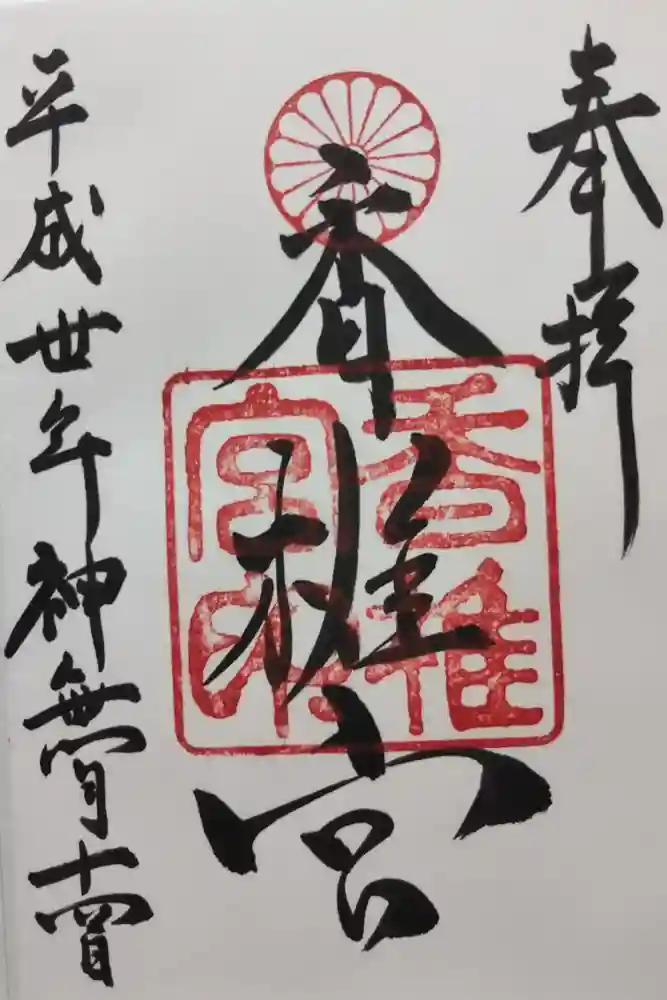 奉拝
香椎宮
香椎宮印
平成卅年神無月十四日